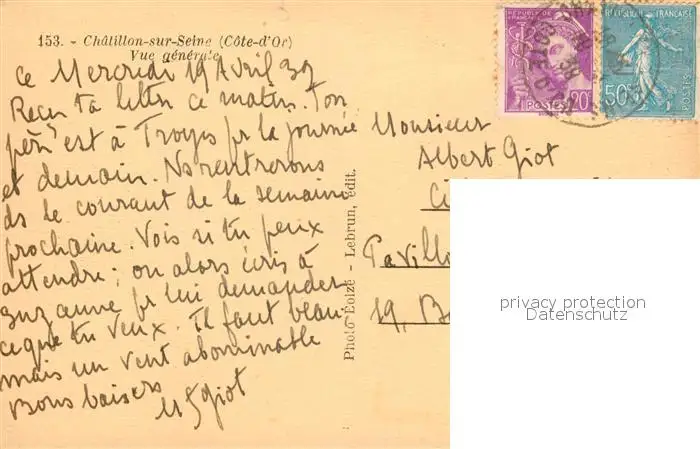 153. - Châtillon-sur-Seine (Côte-d'Or)
Vue générale
ce Mercredi 19 Avril 39
Reçu ta lettre ce matin. Ton
père est à Troyes pr la journée
et demain. Ns rentrerons
ds le courant de la semaine
prochaine. Vois si tu peux
attendre ; ou alors écris à
Suzanne pr lui demander
ce que tu veux. Il fait beau
mais un vent abominable
Bons baisers
Giot
Photo Loize - Lebrun, édit.
REPUBLIQUE FRANÇAISE
20c
POSTES
REPUBLIQUE FRANÇAISE
50c
POSTES
Monsieur
Albert Giot
Pavillo
19, B
privacy protection
Datenschutz